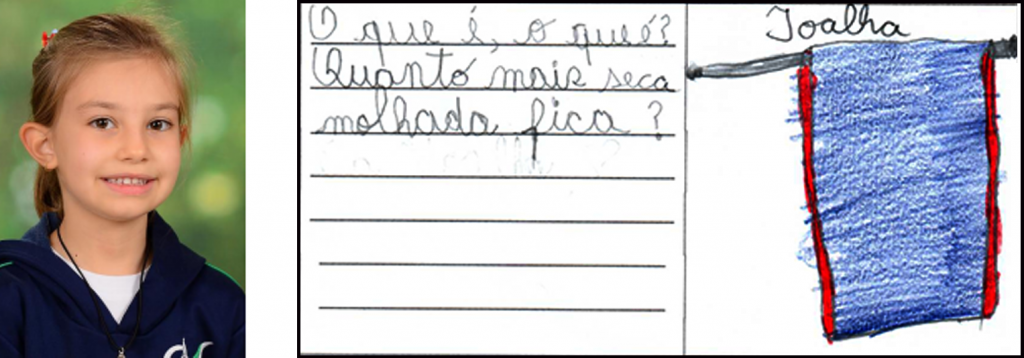 O que é, o qué?
Quanto mais seca
molhada fica?
Toalha